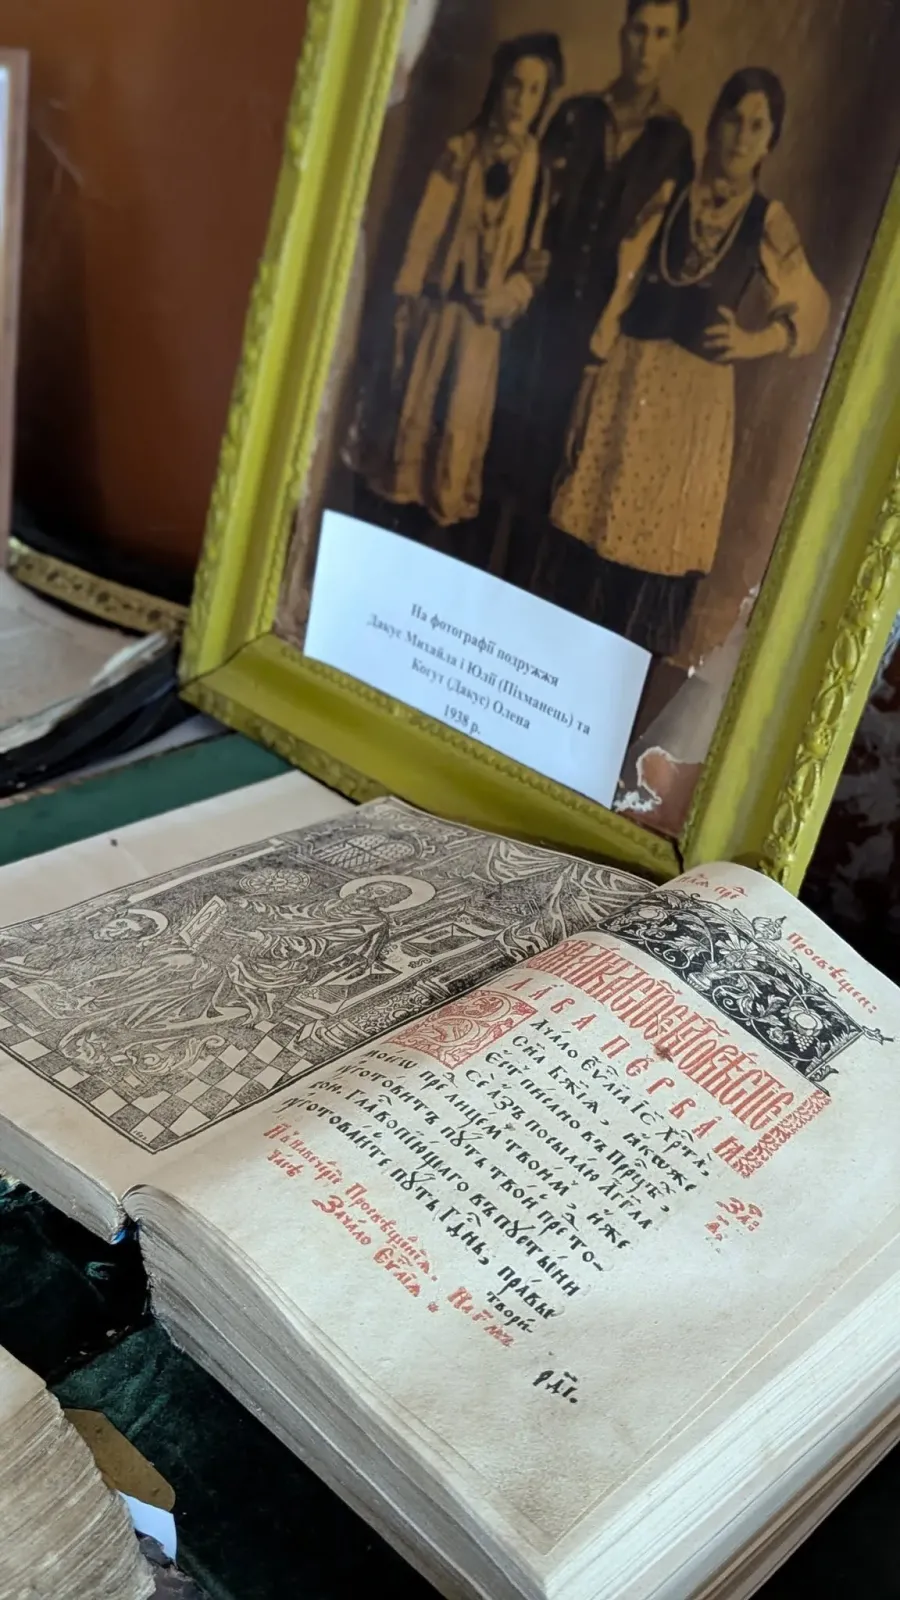 На фотографії подружжя
Дакус Михайла і Юлії (Піхманець) та
Когут (Дакус) Олена
1938 р.
Просвѣщен:
ГЛАВА ПЕРВАѦ
За҄
а҃.
Ꙁачало Еѵⷢ҇лїа І҆с Хрⷭ҇та,
Сн҃а Бж҃їѧ, ꙗкоже
Єсть писано въ прⷪ҇роцѣхъ,
Се а҆зъ посылаю А҆гг҃ла
моего пред̾ лицемъ твоимъ, иже
ᲂуготовитъ пꙋть твой пред̾ то-
бою. Глⷭ҇а вопїющаго въ пꙋстыни
ᲂуготовайте пꙋть Гдⷭ҇нь, правы
твори-
Просвѣщенїѧ.
Зачало Еѵⷢ҇лїа.
рді.